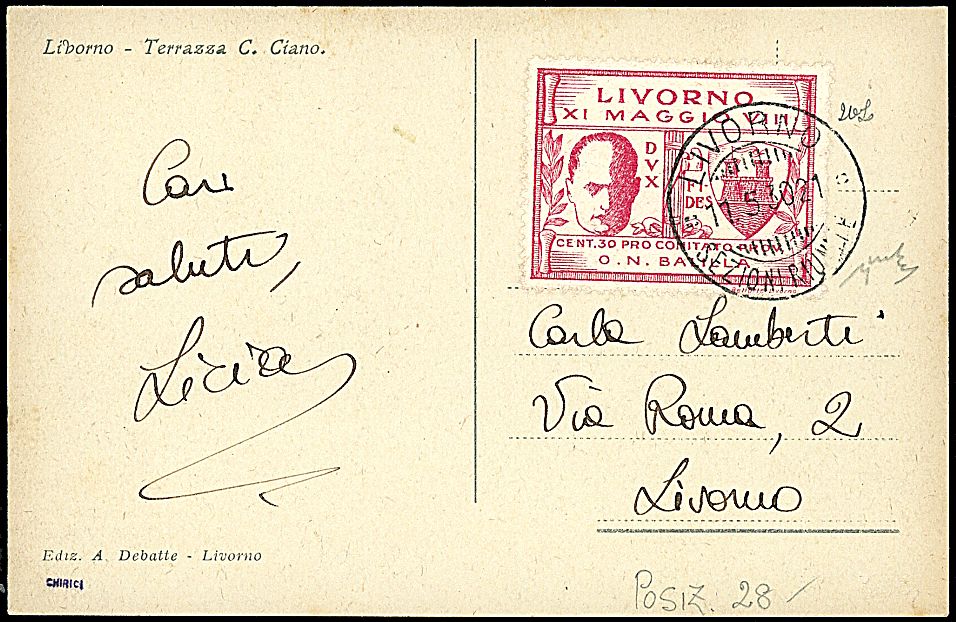 Livorno - Terrazza C. Ciano.
Cari
saluti,
Licia
Ediz. A. Debatte - Livorno
CHIRICI
LIVORNO
XI MAGGIO VIII
DVX
FIDES
CENT. 30 PRO COMITATO PROV.
O. N. BALILLA
LIVORNO
11 5 30 21
Carla Lamberti
Via Roma, 2
Livorno
POSIZ. 28